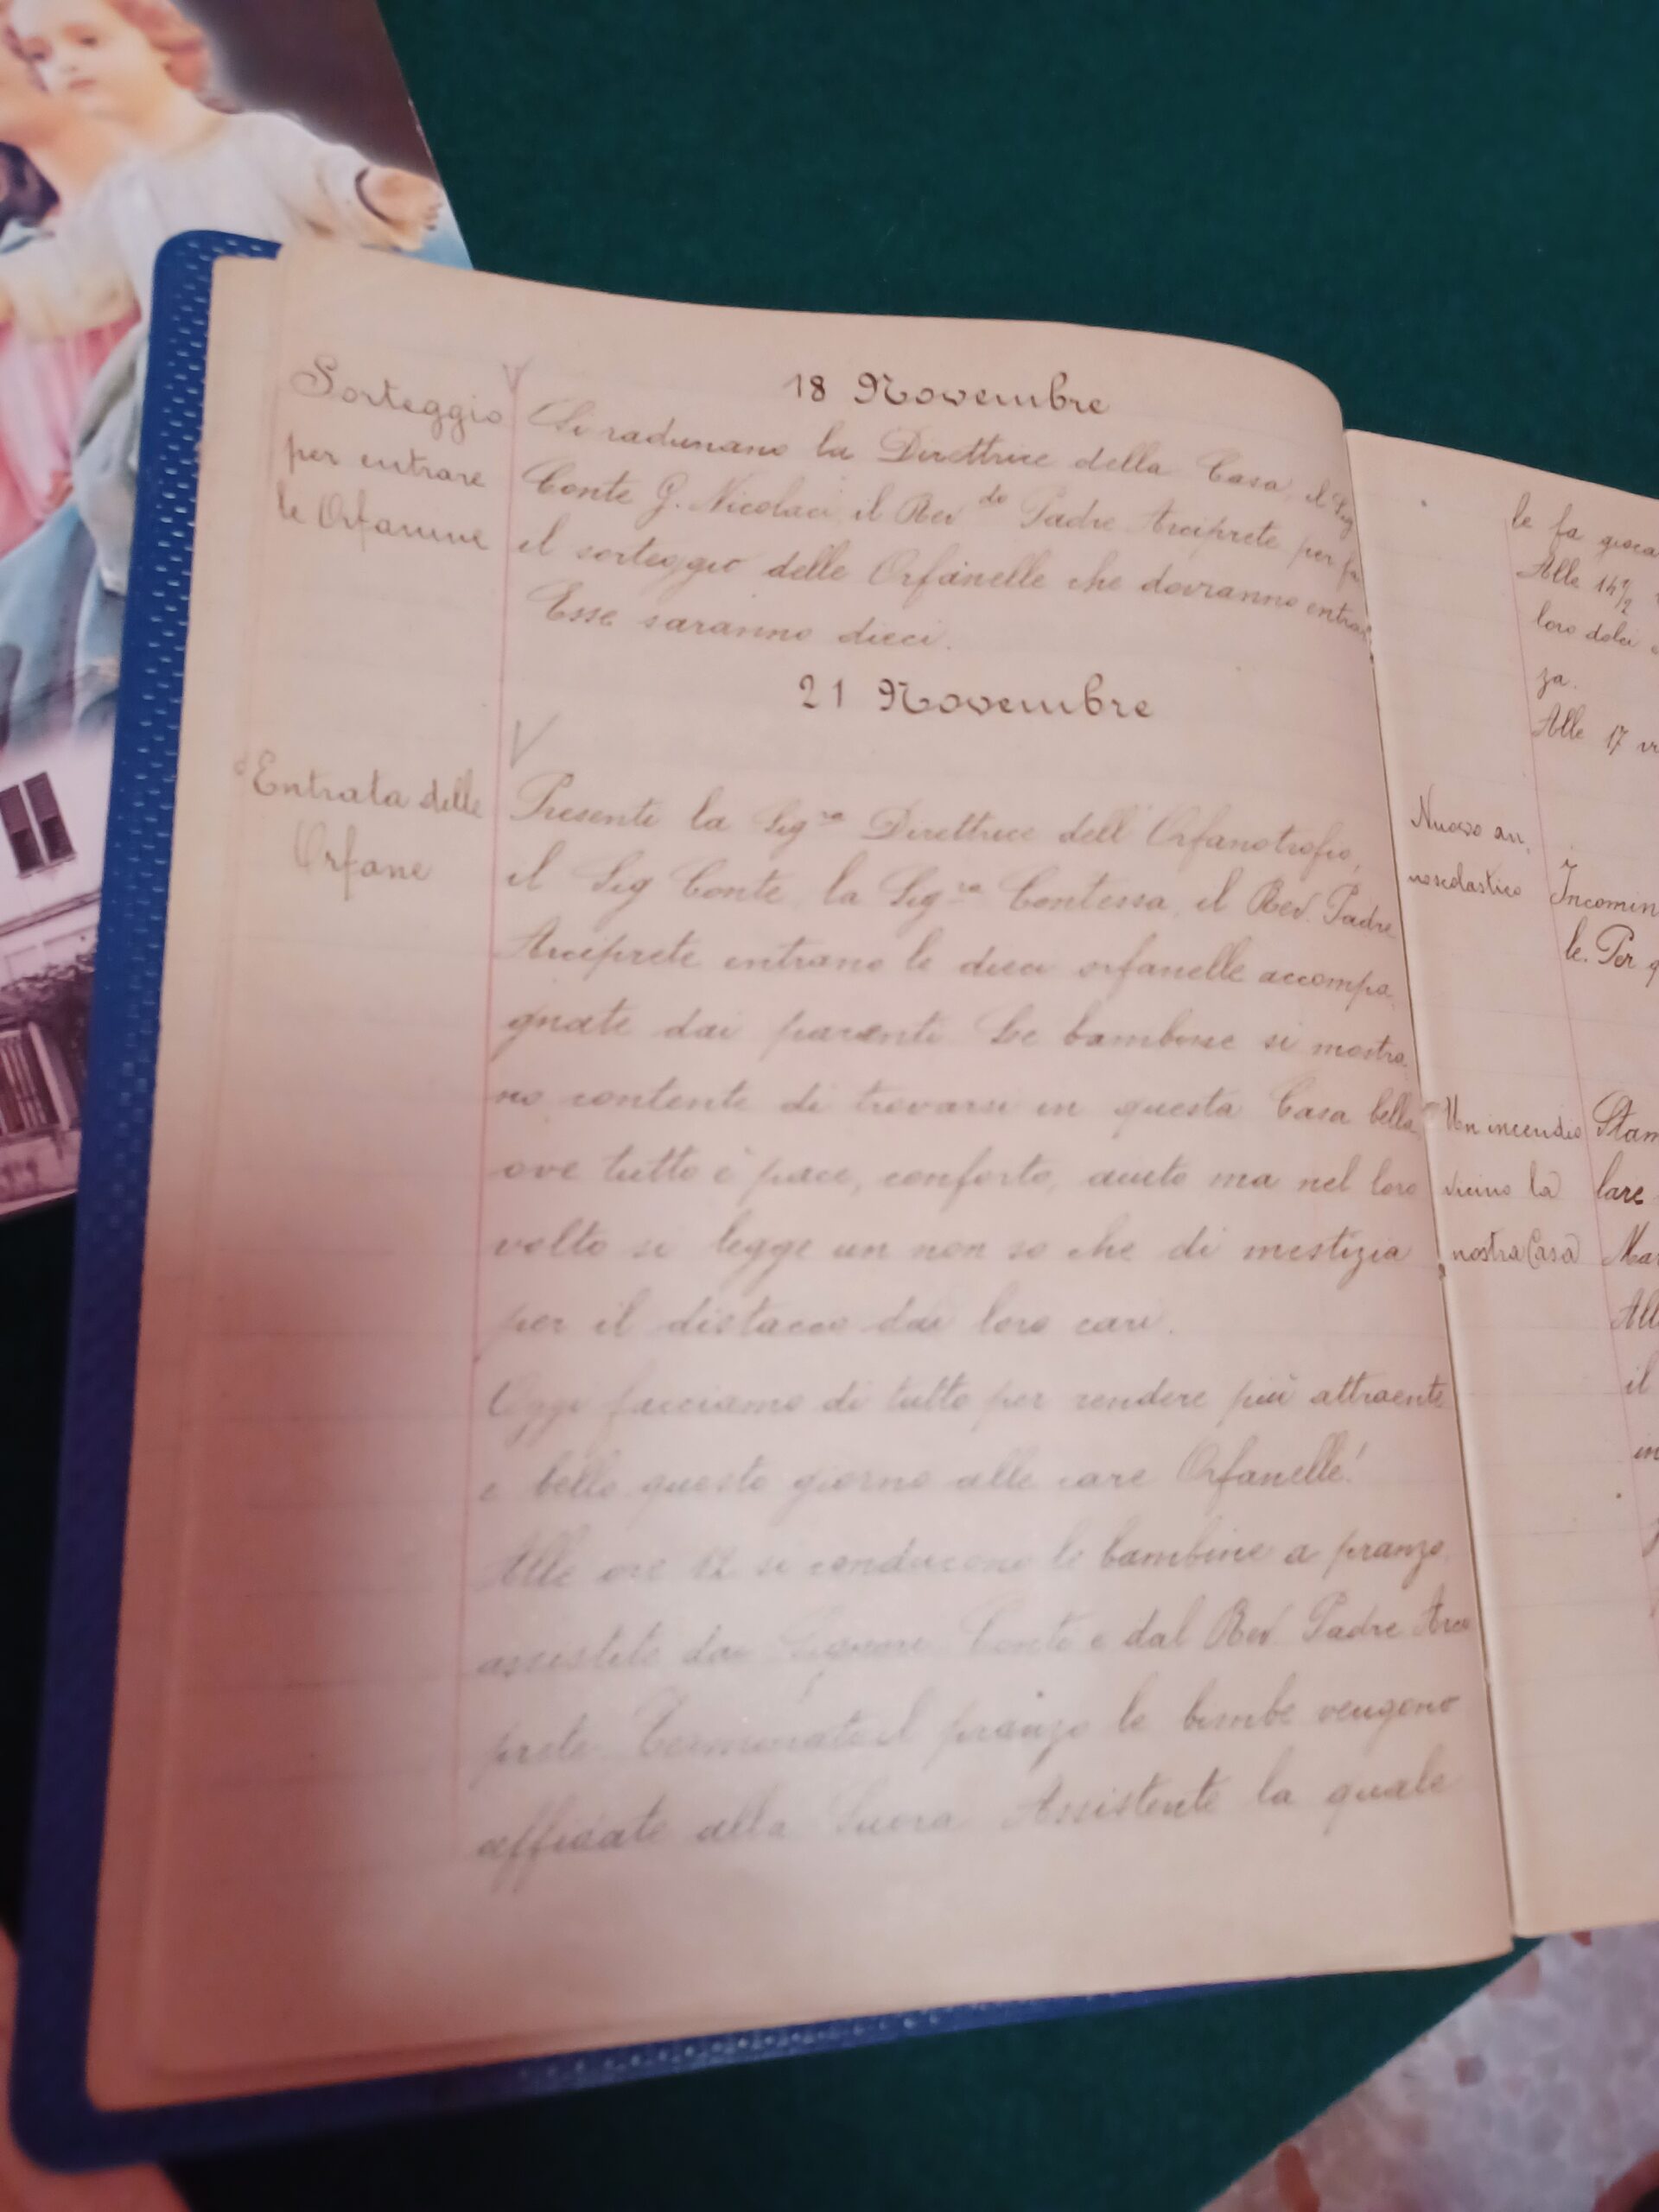 18 Novembre
Sorteggio
per entrare
le Orfanine
Si radunano la Direttrice della Casa, il Sig
Conte G. Nicolaci, il Rev do Padre Arciprete per fa
il sorteggio delle Orfanelle che dovranno entra
Esse saranno dieci.
21 Novembre
Entrata delle
Orfane
Presenti la Sig ra Direttrice dell'Orfanotrofio,
il Sig Conte, la Sig ra Contessa, il Rev. Padre
Arciprete entrano le dieci orfanelle accompa-
gnate dai parenti. Le bambine si mostra-
no contente di trovarsi in questa Casa bella
ove tutto è pace, conforto, aiuto ma nel loro
volto si legge un non so che di mestizia
per il distacco dai loro cari.
Oggi facciamo di tutto per rendere più attraente
e bello questo giorno alle care Orfanelle!
Alle ore 12 si conducono le bambine a pranzo
assistite dai Signori Conte e dal Rev. Padre Arci
prete. Terminato il pranzo le bimbe vengono
affidate alla Suora Assistente la quale
le fa gioca
Alle 14 1/2
loro dolci
za.
Alle 17
Nuovo an,
noscolastico
Incomin
le. Per q
Un incendio
vicino la
nostra Casa
Stam
lare
Mar
All
il
in